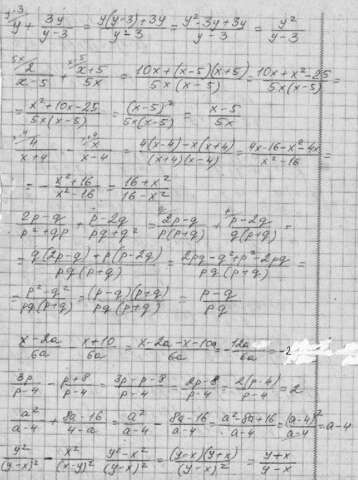 y + 3y/(y-3) = (y(y-3)+3y)/(y-3) = (y²-3y+3y)/(y-3) = y²/(y-3)
2/(x-5) + (x+5)/5x = (10x+(x-5)(x+5))/(5x(x-5)) = (10x+x²-25)/(5x(x-5)) =
= (x²+10x-25)/(5x(x-5)) = (x-5)²/(5x(x-5)) = (x-5)/5x
4/(x+4) - x/(x-4) = (4(x-4)-x(x+4))/((x+4)(x-4)) = (4x-16-x²-4x)/(x²-16) =
= -(x²+16)/(x²-16) = (16+x²)/(16-x²)
(2p-q)/(p²+qp) + (p-2q)/(pq+q²) = (2p-q)/(p(p+q)) + (p-2q)/(q(p+q)) =
= (q(2p-q)+p(p-2q))/(pq(p+q)) = (2pq-q²+p²-2pq)/(pq(p+q)) =
= (p²-q²)/(pq(p+q)) = ((p-q)(p+q))/(pq(p+q)) = (p-q)/pq
(x-2a)/6a - (x+10)/6a = (x-2a-x-10a)/6a = -12a/6a = -2
3p/(p-4) - (p+8)/(p-4) = (3p-p-8)/(p-4) = (2p-8)/(p-4) = 2(p-4)/(p-4) = 2
a²/(a-4) + (8a-16)/(4-a) = a²/(a-4) - (8a-16)/(a-4) = (a²-8a+16)/(a-4) = (a-4)²/(a-4) = a-4
y²/(y-x)² - x²/(x-y)² (y²-x²)/(y-x)² = (y-x)(y+x)/(y-x)² = (y+x)/(y-x)